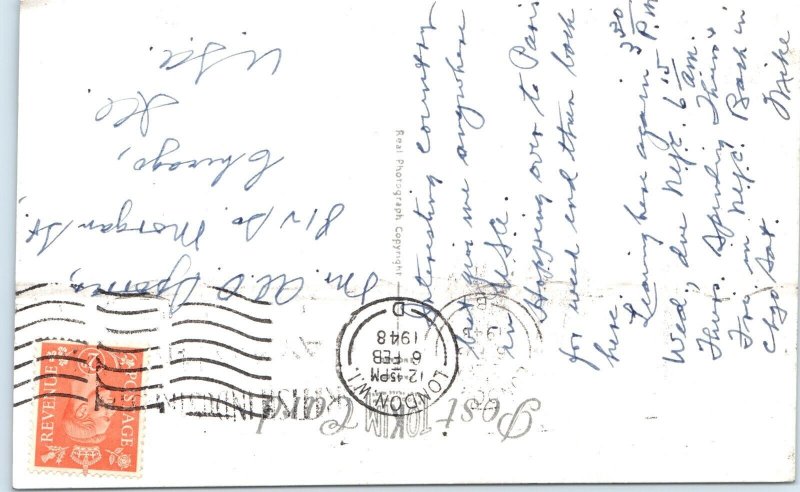 Post Card
LONDON. W.1.
12-45 PM
6 FEB
1948
D
POSTAGE
REVENUE
Real Photograph Copyright
Interesting country
but give me anywhere
in U.S.A.
Hopping over to Paris
for week end then back
here.
Leaving here again 3 30 P.M.
Wed, due N.Y.C. 6 15 am.
Thurs. Spending Thurs &
Fri in N.Y.C. Back in
Chgo Sat.
Mike
Mr. Al
So. Morgan St.
Chicago,
Ill
U.S.A.